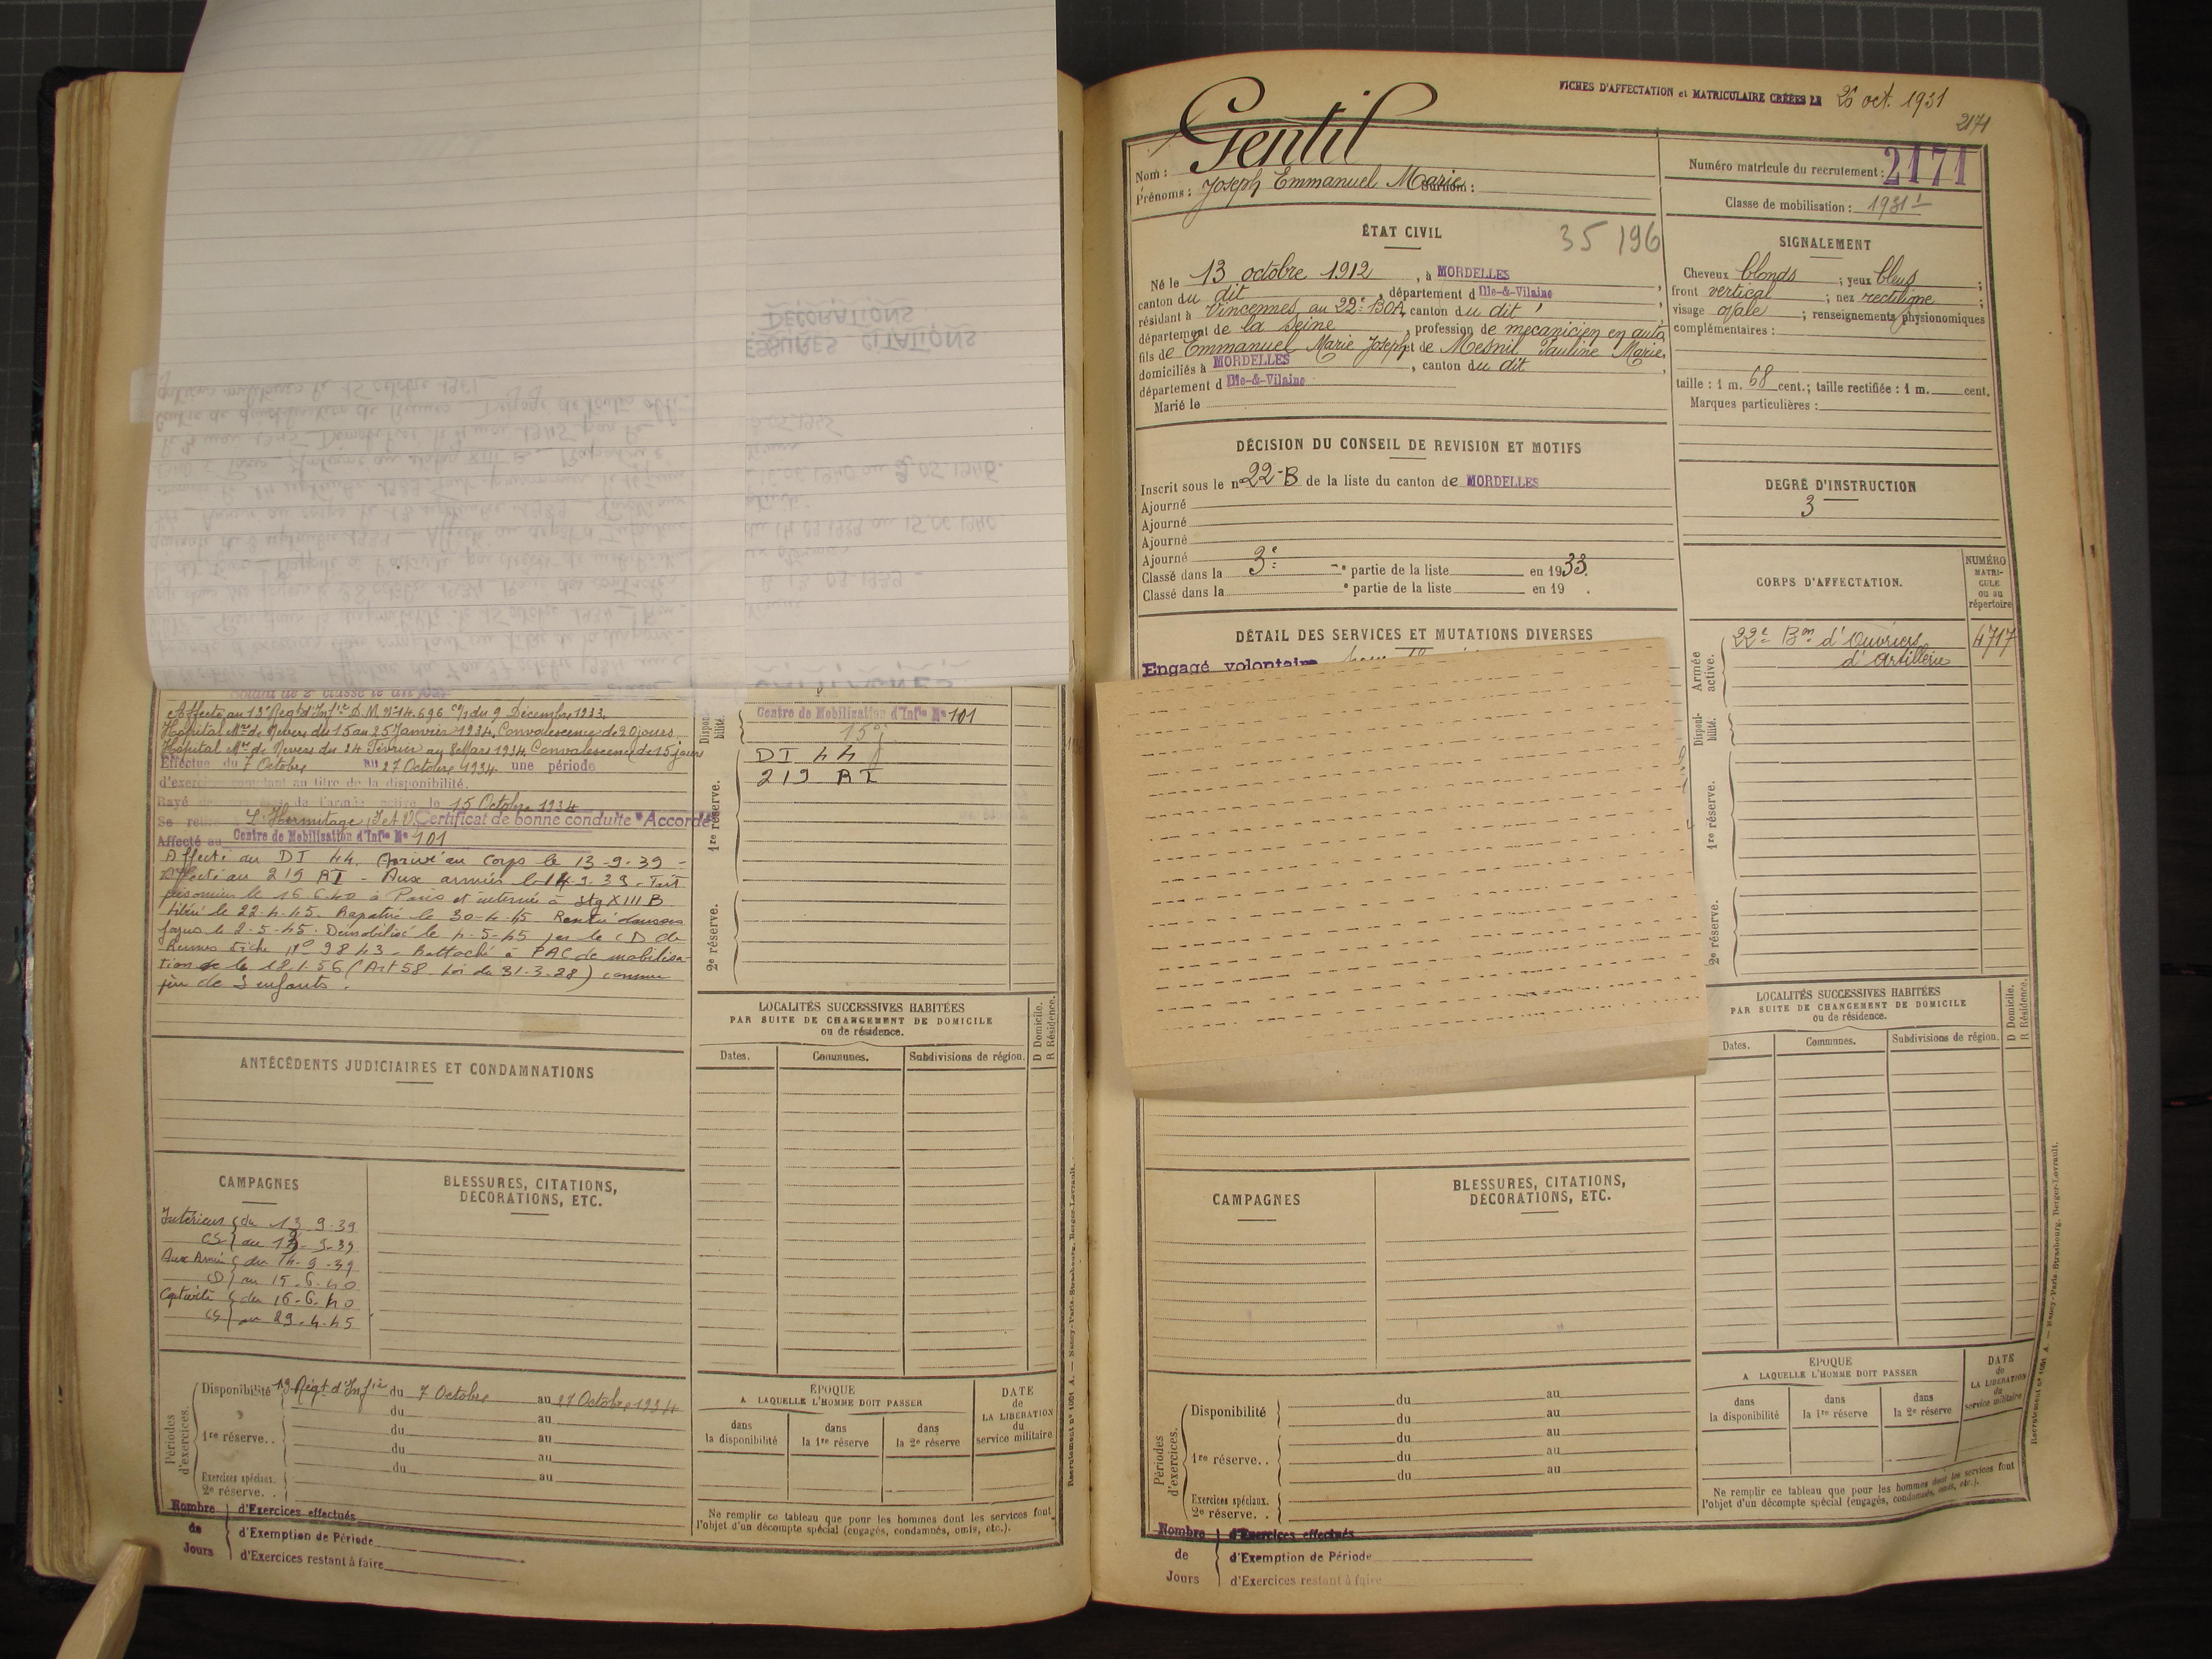 Soldat de 2e classe le dit jour
Affecté au 13e Regt d'Infie D.M. No 14.696 c/1 du 9 Décembre 1933.
Hôpital Mre de Nevers du 15 au 25 Janvier 1934. Convalescence de 20 jours
Hôpital Mre de Nevers du 24 Février au 8 Mars 1934. Convalescence de 15 jours
Effectue du 7 Octobre au 27 Octobre 1934 une période
d'exercices comptant au titre de la disponibilité.
Rayé de l'armée active le 15 Octobre 1934
Se retire à L'Hermitage, I et V. Certificat de bonne conduite "Accordé"
Affecté au Centre de Mobilisation d'Infie No 101
Affecté au DI 44. Arrivé au Corps le 13-9-39 -
Affecté au 219 RI - Aux armées le 14-9-39. Fait
prisonnier le 16.6.40 à Paris et interné à Stg XIII B
Libéré le 22-4-45. Rapatrié le 30-4-45 Rentré dans ses
foyers le 2-5-45. Démobilisé le 4-5-45 par le CD de
Rennes fiche No 9843. Rattaché à PAC de mobilisa-
tion le 18.1.56 (Art 58 Loi du 31-3-28) comme
père de 3 enfants.
Disponibilité.
Centre de Mobilisation d'Infie No 101
15e
1re réserve.
DI 44
219 RI
2e réserve.
ANTÉCÉDENTS JUDICIAIRES ET CONDAMNATIONS
LOCALITÉS SUCCESSIVES HABITÉES
PAR SUITE DE CHANGEMENT DE DOMICILE
ou de résidence.
Dates. Communes. Subdivisions de région.
D Domicile.
R Résidence.
CAMPAGNES
Intérieur { du 13-9-39
CS } au 13-9-39
Aux Armées { du 14-9-39
CD } au 15-6-40
Captivité { du 16-6-40
CS } au 29-4-45
BLESSURES, CITATIONS,
DÉCORATIONS, ETC.
Périodes d'exercices.
Disponibilité 13 Régt d'Infie du 7 Octobre au 27 Octobre 1934
du au
1re réserve. . du au
du au
du au
Exercices spéciaux.
2e réserve. .
ÉPOQUE
A LAQUELLE L'HOMME DOIT PASSER
dans
la disponibilité
dans
la 1re réserve
dans
la 2e réserve
DATE
de
LA LIBERATION
du
service militaire
Ne remplir ce tableau que pour les hommes dont les services font
l'objet d'un décompte spécial (engagés, condamnés, omis, etc.).
Nombre
de
Jours
d'Exercices effectués
d'Exemption de Période
d'Exercices restant à faire
Recrutement no 1051 A. — Nancy-Paris-Strasbourg, Berger-Levrault.
FICHES D'AFFECTATION et MATRICULAIRE CRÉÉES LE 26 oct. 1931
2171
Nom : Gentil
Prénoms : Joseph Emmanuel Marie Surnom :
Numéro matricule du recrutement : 2171
Classe de mobilisation : 1931
ÉTAT CIVIL
35 196
Né le 13 octobre 1912, à MORDELLES,
canton du dit, département d Ille-&-Vilaine,
résidant à Vincennes au 22e BOA, canton du dit,
département de la Seine, profession de mécanicien en auto
fils de Emmanuel Marie Joseph et de Mesnil Pauline Marie,
domiciliés à MORDELLES, canton du dit,
département d Ille-&-Vilaine
Marié le
SIGNALEMENT
Cheveux blonds ; yeux bleus ;
front vertical ; nez rectiligne ;
visage ovale ; renseignements physionomiques
complémentaires :
taille : 1 m. 68 cent.; taille rectifiée : 1 m. cent.
Marques particulières :
DÉCISION DU CONSEIL DE REVISION ET MOTIFS
Inscrit sous le no 22-B de la liste du canton de MORDELLES
Ajourné
Ajourné
Ajourné
Ajourné
Classé dans la 3e partie de la liste en 1933.
Classé dans la e partie de la liste en 19 .
DEGRÉ D'INSTRUCTION
3
DÉTAIL DES SERVICES ET MUTATIONS DIVERSES
Engagé volontaire
CORPS D'AFFECTATION.
NUMÉRO
MATRI-
CULE
ou au
répertoire
Armée active.
22e Bon d'Ouvriers
d'Artillerie
4717
Disponibilité.
1re réserve.
2e réserve.
LOCALITÉS SUCCESSIVES HABITÉES
PAR SUITE DE CHANGEMENT DE DOMICILE
ou de résidence.
Dates. Communes. Subdivisions de région.
D Domicile.
R Résidence.
CAMPAGNES
BLESSURES, CITATIONS,
DÉCORATIONS, ETC.
Périodes d'exercices.
Disponibilité du au
du au
1re réserve. . du au
du au
du au
Exercices spéciaux.
2e réserve. .
ÉPOQUE
A LAQUELLE L'HOMME DOIT PASSER
dans
la disponibilité
dans
la 1re réserve
dans
la 2e réserve
DATE
de
LA LIBÉRATION
du
service militaire
Ne remplir ce tableau que pour les hommes dont les services font
l'objet d'un décompte spécial (engagés, condamnés, omis, etc.).
Nombre
de
Jours
d'Exercices effectués
d'Exemption de Période
d'Exercices restant à faire
Recrutement no 1051 A. — Nancy-Paris-Strasbourg, Berger-Levrault.